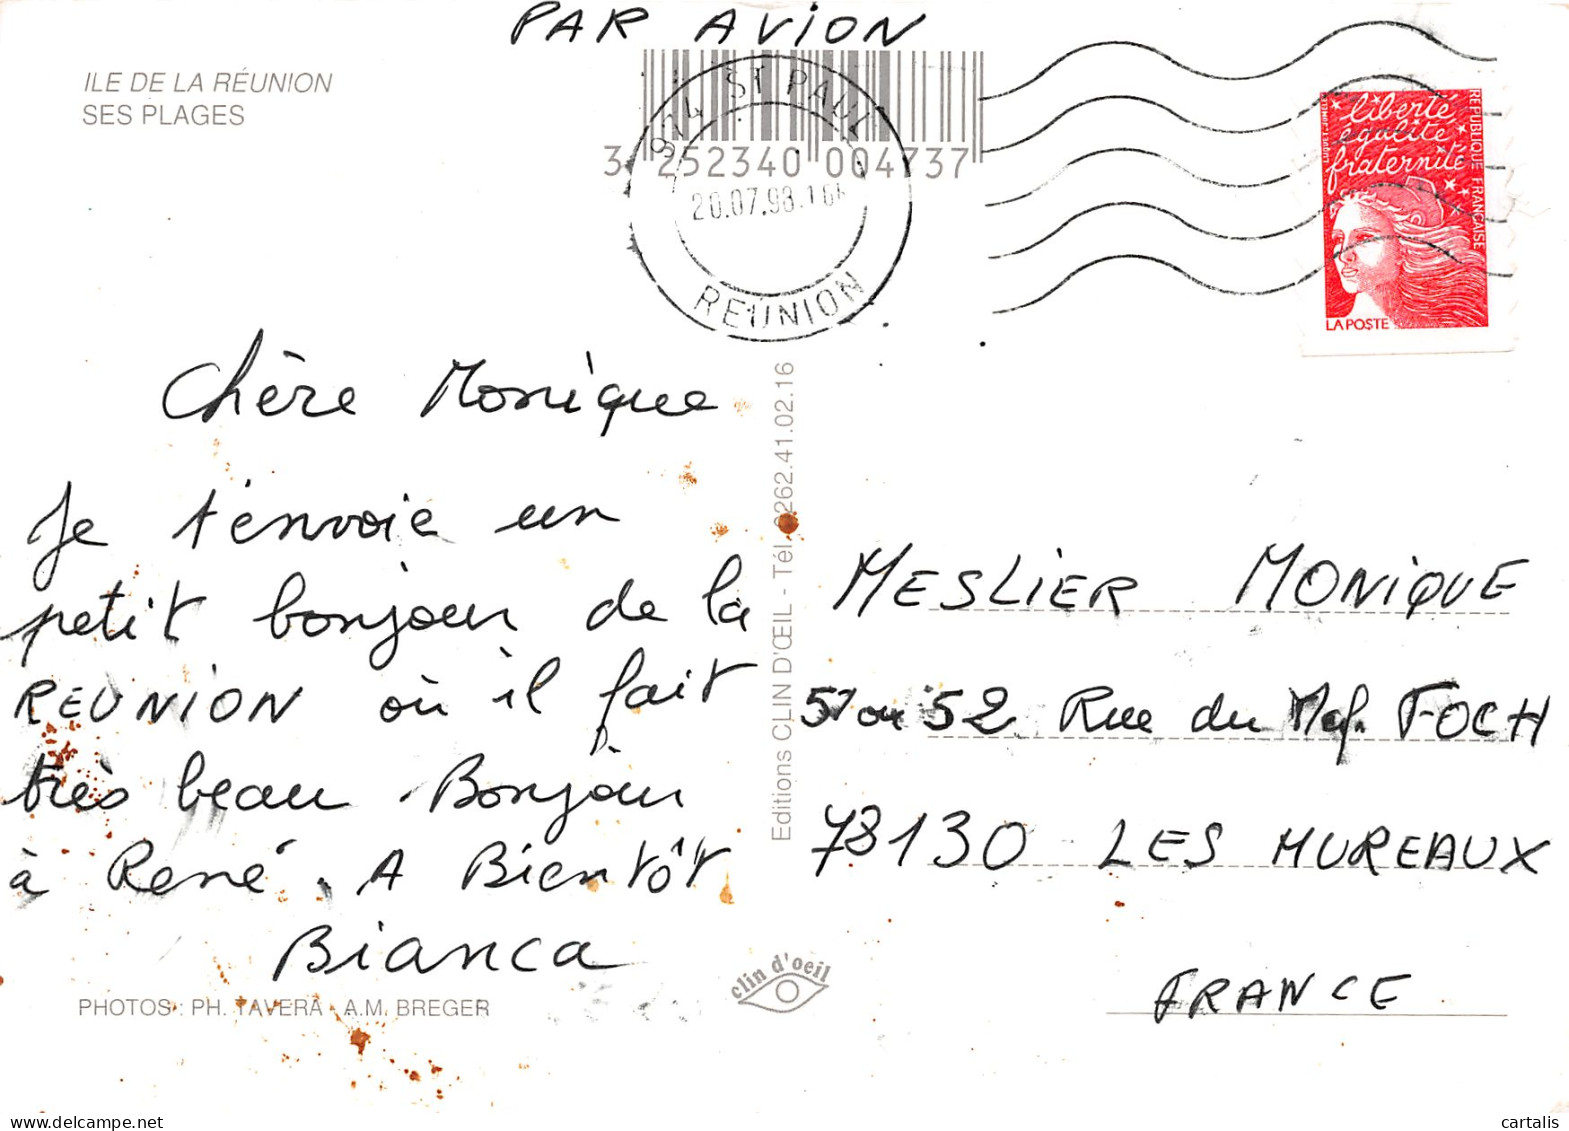 PAR AVION
ILE DE LA RÉUNION
SES PLAGES
3 252340 004737
974 ST PAUL
20.07.98
REUNION
liberté
égalité
fraternité
RÉPUBLIQUE FRANÇAISE
LUQUET-JUMELET
LA POSTE
Chère Monique
Je t'envoie un
petit bonjour de la
REUNION où il fait
très beau. Bonjour
à René. A Bientôt
Bianca
PHOTOS : PH. TAVERA - A.M. BREGER
Editions CLIN D'ŒIL - Tél. 0262.41.02.16
clin d'oeil
MESLIER MONIQUE
51 ou 52 Rue du Mal. FOCH
78130 LES MUREAUX
FRANCE
cartalis